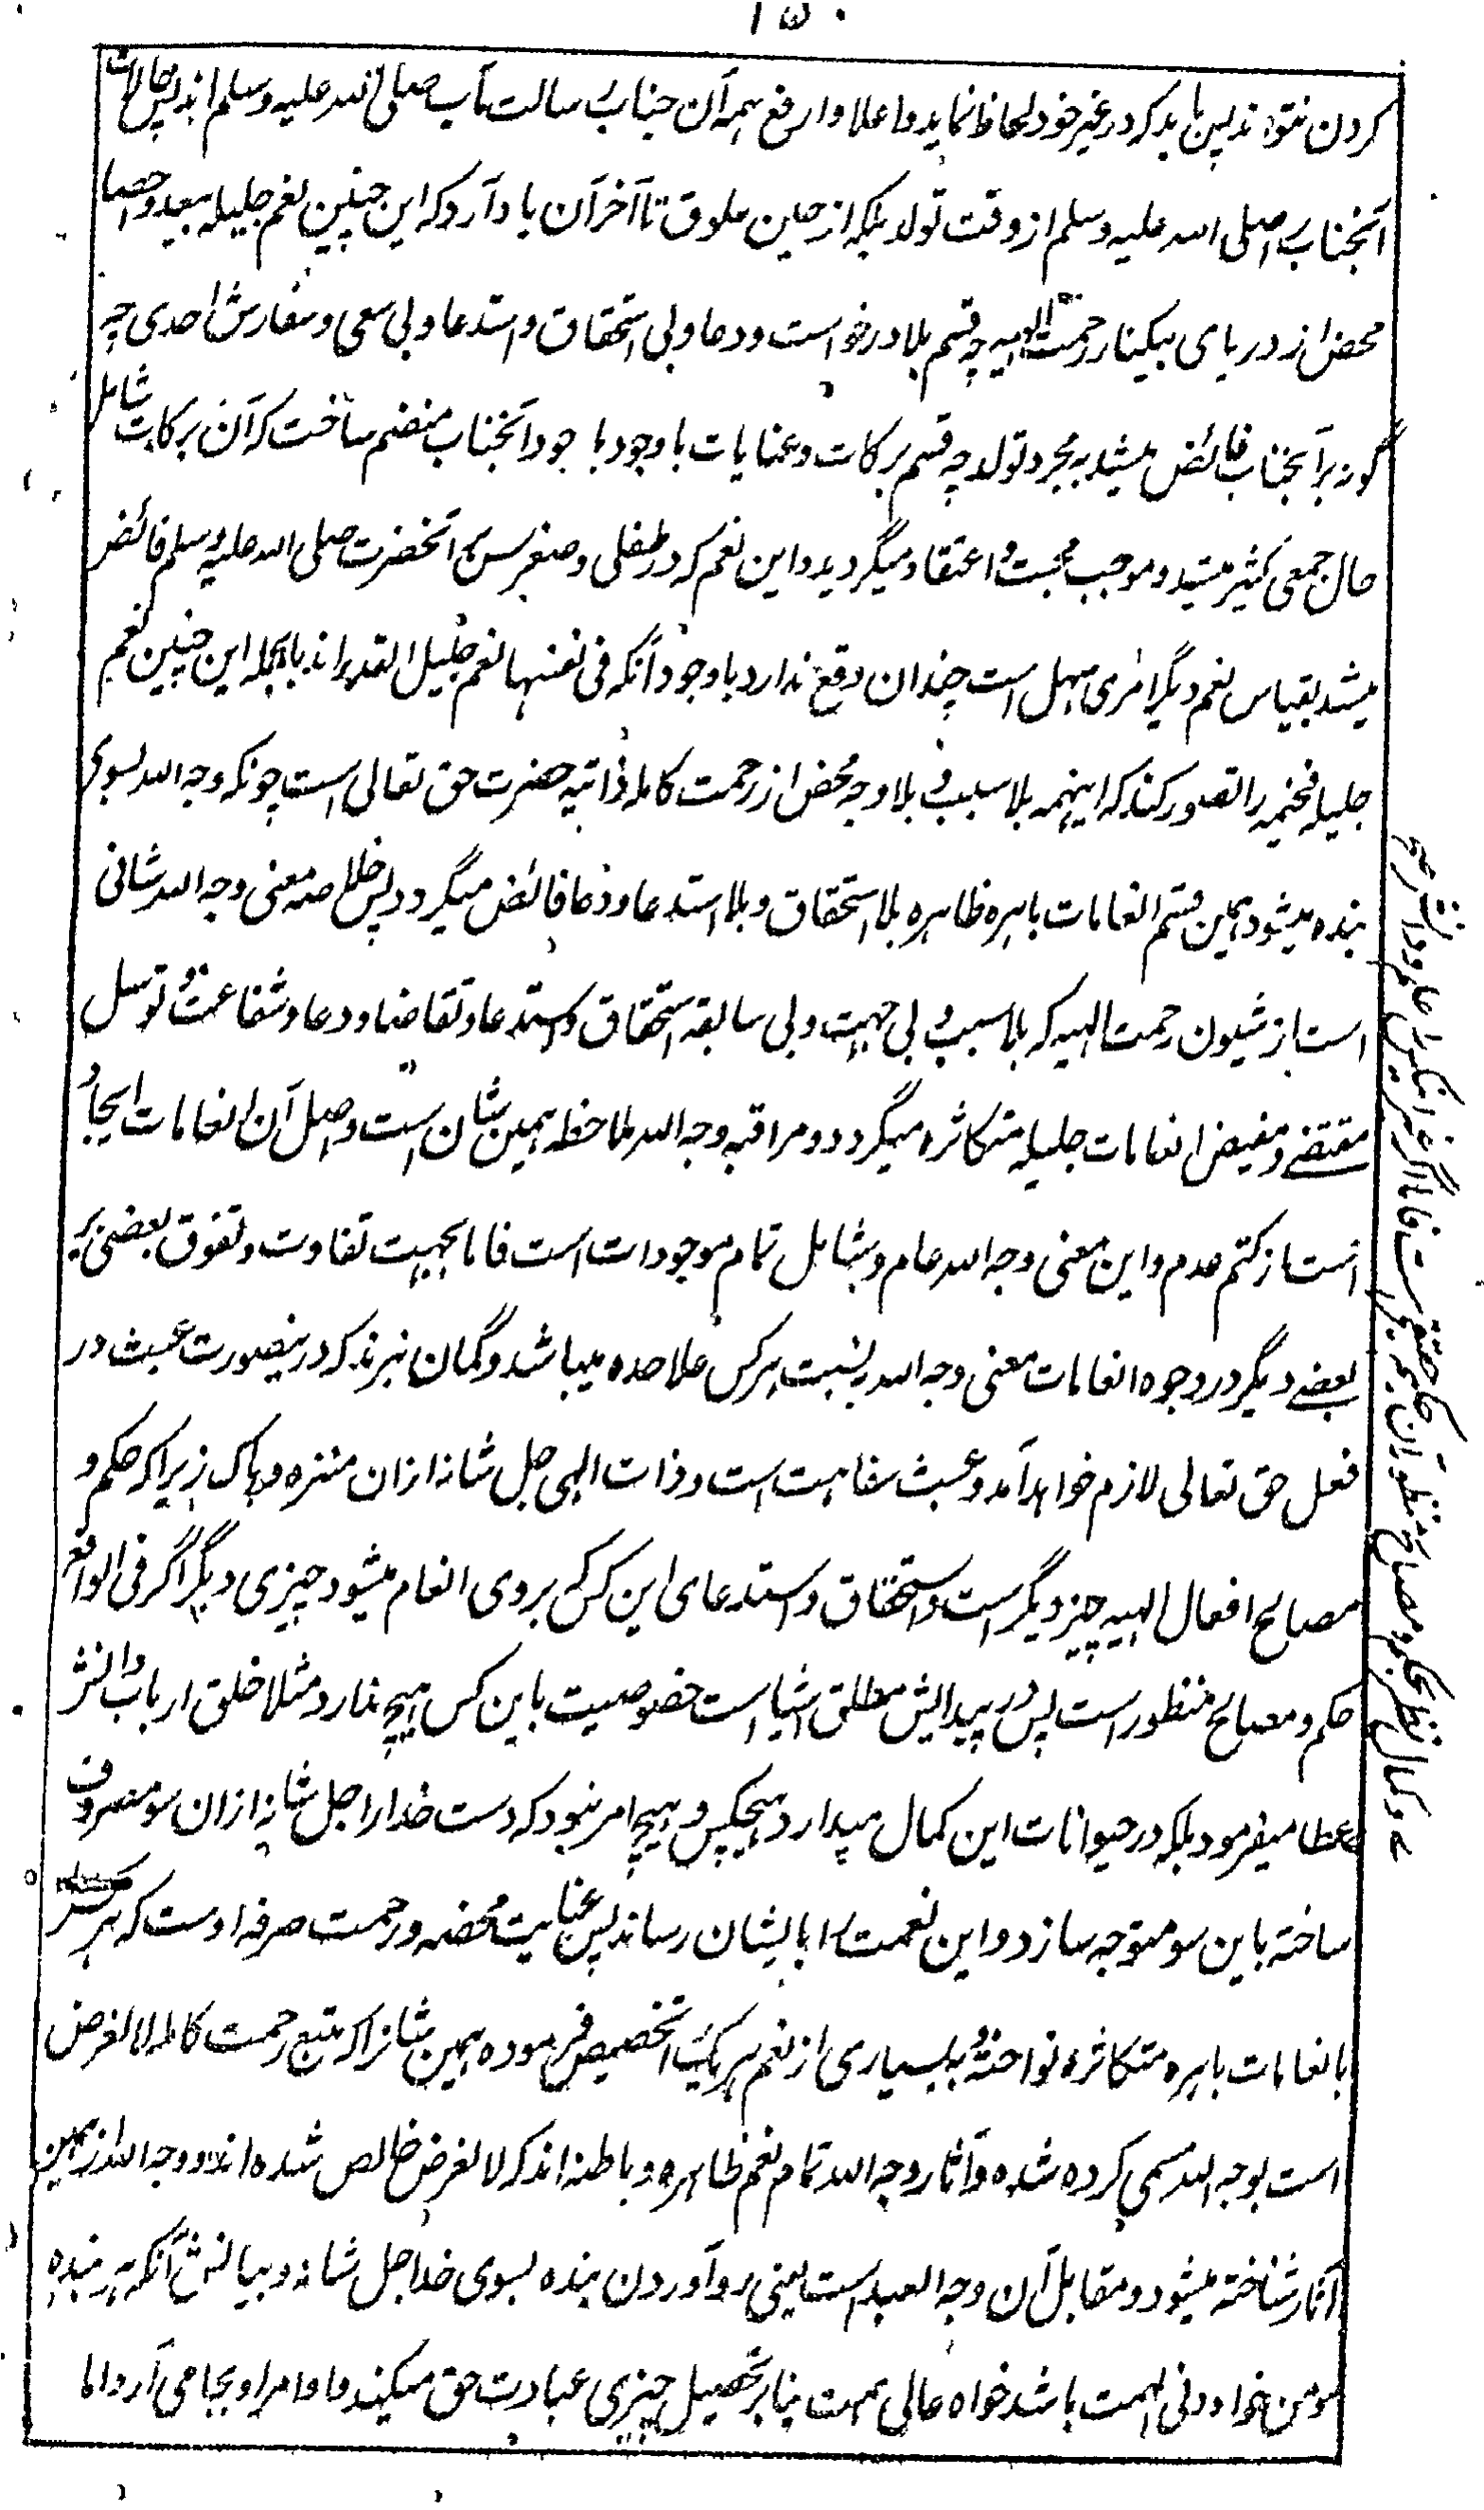 ۱۵۰
کردن نتواند پس باید که در غیر خود لحاظ نماید و اعلا و ارفع همه آن جناب رسالت مآب صلی الله علیه وسلم اند پس حالات
آنجناب را صلی الله علیه وسلم از وقت تولد بلکه از حین علوق تا آخر آن یاد آرد که این چنین نعم جلیله بیعد و احصا
محض از دریای بیکنار رحمت الهیه چه قسم بلا درخواست و دعا و بی استحقاق و استدعا و بی سعی و سفارش احدی چه
گونه بر آنجناب فائض میشد به مجرد تولد چه قسم برکات و عنایات با وجود با جود آنجناب منضم ساخت که آن برکات شامل
حال جمعی کثیر میشد و موجب محبت و اعتقاد میگردید و این نعم که در طفلی و صغر سن بر آنحضرت صلی الله علیه وسلم فائض
میشد بقیاس نعم دیگر امری سهل است چندان وقع ندارد با وجود آنکه فی نفسها نعم جلیل القدر اند بالجمله این چنین نعم
جلیله فخیمه را تصور کند که اینهمه بلا سبب و بلا وجه محض از رحمت کامله ذاتیه حضرت حق تعالی است چونکه وجه الله بسوی
بنده میشود همین قسم انعامات باهره ظاهره بلا استحقاق و بلا استدعا و دعا فائض میگردد پس خلاصه معنی وجه الله شانی
است از شیون رحمت الهیه که بلا سبب و بی جهت و بی سابقه استحقاق و استدعا و تقاضا و دعا و شفاعت و توسل
مقتضی و مفیض انعامات جلیله متکاثره میگردد و مراقبه وجه الله ملاحظه همین شان است و اصل آن انعامات ایجاد
است از کتم عدم و این معنی وجه الله عام و شامل تمام موجودات است فاما بجهت تفاوت و تفوق بعضی بر
بعضے دیگر در وجوه انعامات معنی وجه الله بنسبت هر کس علاحده میباشد و گمان نبرند که درینصورت عبث در
فعل حق تعالی لازم خواهد آمد و عبث سفاهت است و ذات الهی جل شانه ازان منزه و پاک زیرا که حکم و
مصالح افعال الهیه چیز دیگر است و استحقاق و استدعای این کس که بروی انعام میشود چیزی دیگر اگر فی الواقع
حکم و مصالح منظور است پس در پیدایش مطلق اشیا است خصوصیت باین کس هیچ ندارد مثلا خلق ارباب دانش
عطا میفرمود بلکه در حیوانات این کمال میدارد هیچکس و هیچ امر نبود که دست خدا را جل شانه ازان سو مصروف
ساخته باین سو متوجه سازد و این نعمت را بایشان رساند پس عنایت محضه و رحمت صرفه اوست که هر کس
بانعامات باهره متکاثره نواخته و به بسیاری از نعم هر یک را تخصیص فرموده همین شانرا که منبع رحمت کامله لا لغرض
است بوجه الله مسمی کرده شده و آثار وجه الله تمام نعم ظاهره و باطنه اند که لا لغرض خالص شده اند و وجه الله از همین
آثار شناخته میشود و مقابل آن وجه العبد است یعنی رو آوردن بنده بسوی خدا جل شانه و بیانش آنکه هر بنده
مومن خواه دنی الهمت باشد خواه عالی همت بنا بر تحصیل چیزی عبادت حق میکند و اوامر او بجا می آرد اما